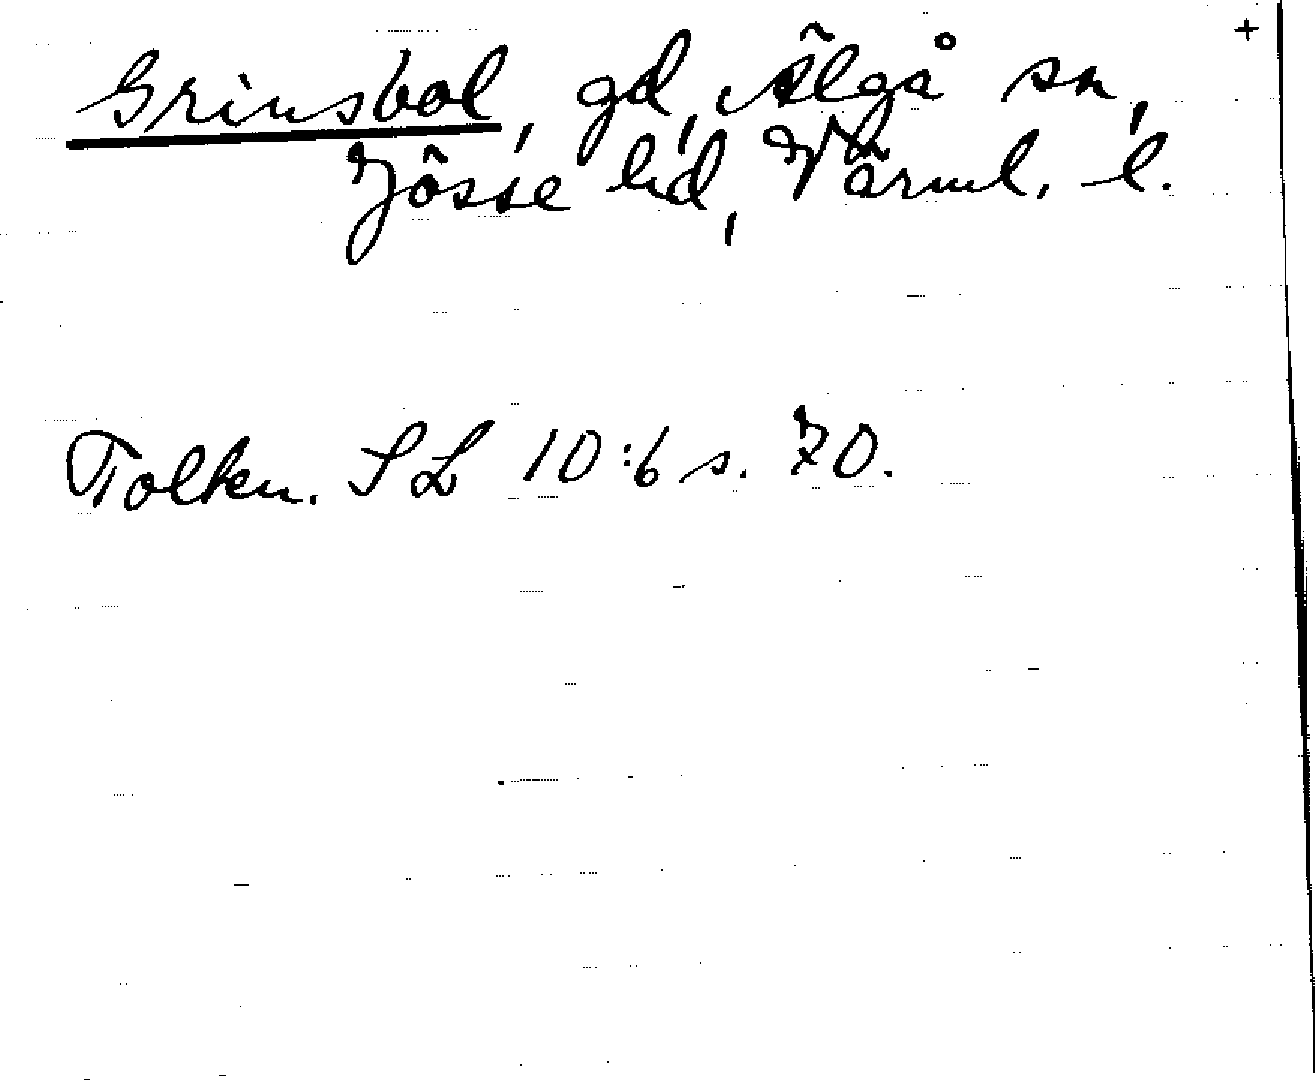 +
Grinsbol, gd, Älgå sn,
Jösse hd, Värml. l.
Tolkn. SL 10:6 s. 70.